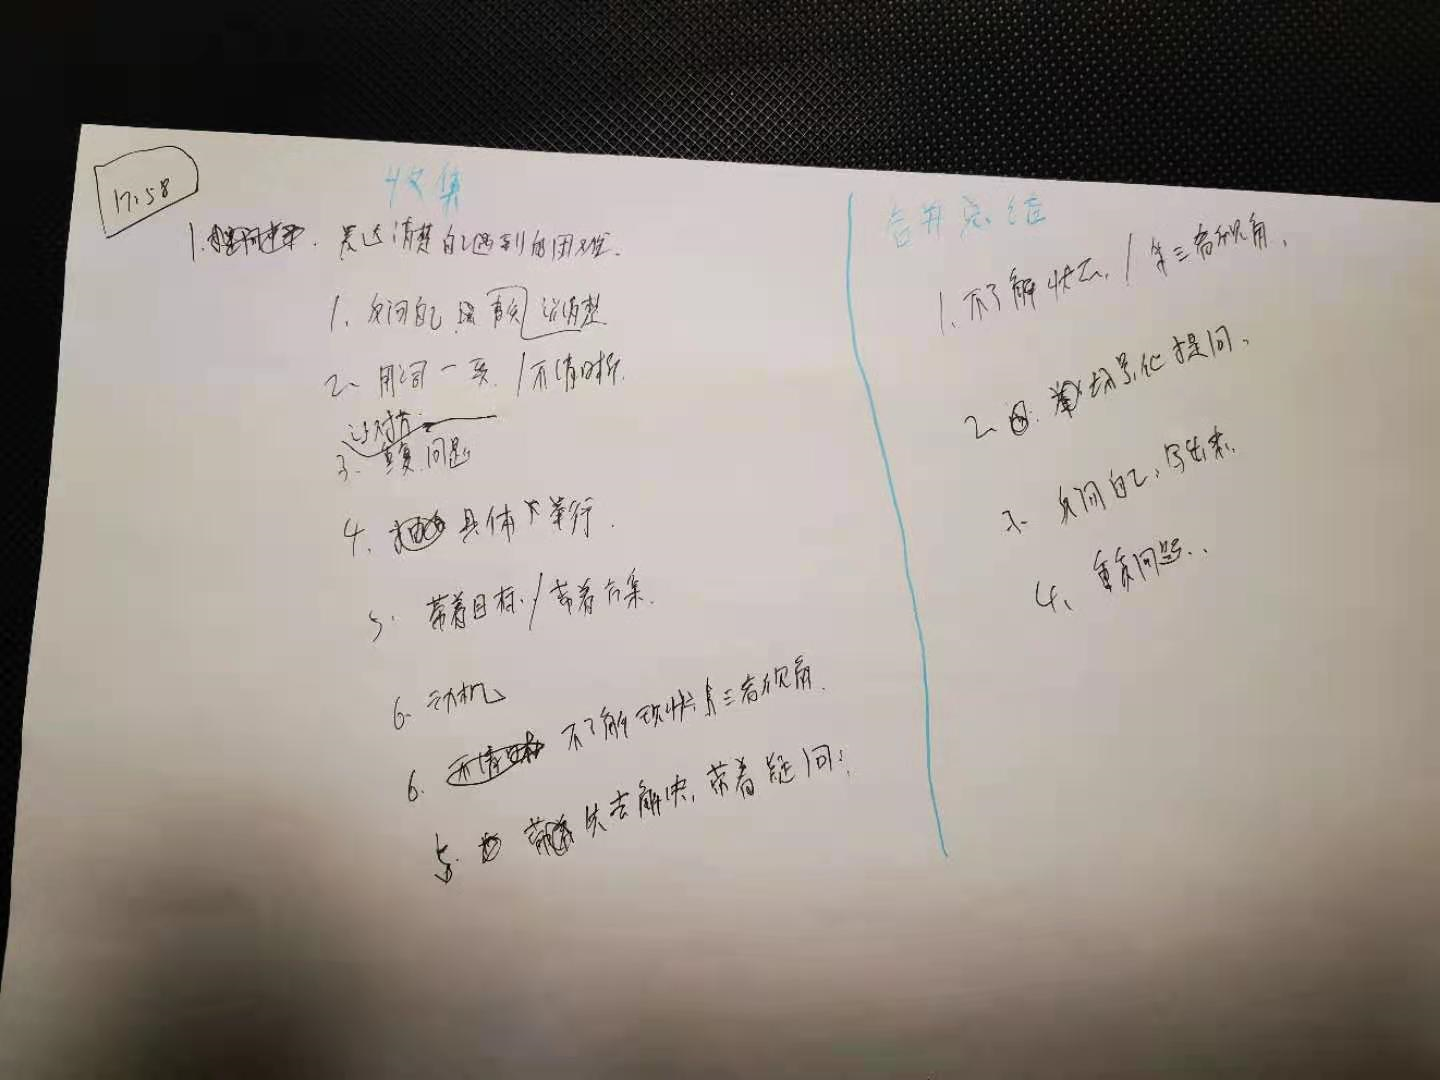 17:58
收集
1. 表达清楚自己遇到的困难.
1、反问自己 是否 说清楚
2、用词一致. /不清晰.
让对方
3、重复问题
4、具体 举行.
5. 带着目标./带着方案.
6. 动机
6. 不了解现状 第三者视角.
5. 先去解决, 带着疑问;
合并总结
1、不了解状态, / 第三者视角.
2、场景化提问、
3、反问自己, 写出来.
4、重复问题..